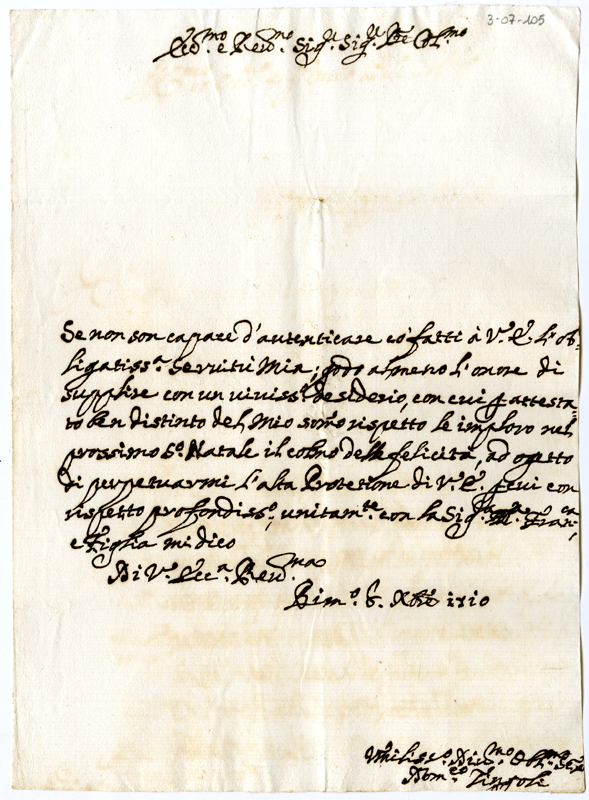 3-07-105
Ecc.mo e Rev.mo Sig.r Sig.r P.ne Col.mo
Se non son capace d'autenticare co' fatti à V.a E. l'ob-
ligatiss.a servitù Mia; godo almeno l'onore di
supplire con un viviss.o desiderio, con cui p attesta-
to ben distinto del Mio som̃o rispetto le imploro nel
prossimo S.o Natale il colmo delle felicità, ad ogetto
di perpetuarmi l'alta Protetione di V.a E. p cui con
rispetto profondiss.o, unitam.te con la Sig.ra Fran.ca,
e Figlia mi dico
Di V.a Ecc.a Rev.ma
6. Xbre 1710
Umiliss.o Div.mo Obl.mo Ser.e
Dom.co